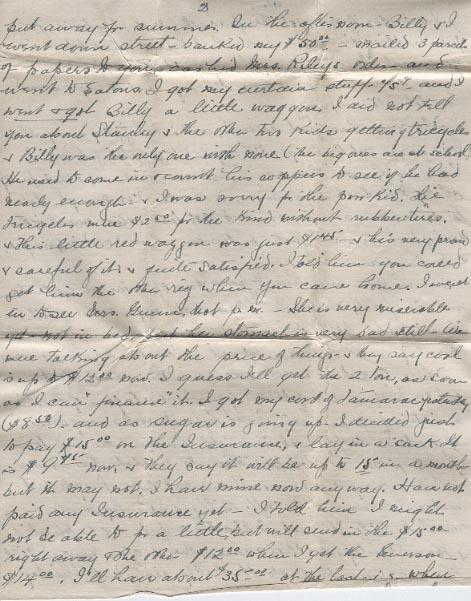 3
put away for summer. In the afternoon - Billy & I
went down street - banked my $50.00 - mailed 3 parcels
of papers to you, cashed Mrs. Rileys order and
went to Eatons. I got my curtain stuff and I
went & got Billy a little waggon. I did not tell
you about Stanley & the other two kids getting tricycles
& Billy was the only one with none (the big ones are at school)
He used to come in & count his coppers to see if he had
nearly enough & I was sorry for the poor kid. The
tricycles were $2.00 for the kind without rubber tires.
& this little red waggon was just $1.45 & he's very proud
& careful of it & quite satisfied. I told him you could
get him the other rig when you came home. I went
in to see Mrs. p.m. - She is very miserable
yet - not in bed but her stomach is very bad still - We
were talking about the price of things & they say coal
is up to $12.00 now. I guess I'll get the 2 ton, as soon
as I can "finance" it. I got my cord of Tamarac yesterday,
($8.50). and as sugar is going up I decided just
to pay $15.00 on the Insurance, & lay in a sack. It
is $9.45 now. & they say it will be up to 15 in a month
but it may not. I have mine now anyway. Have not
paid any Insurance yet - I told him I might
not be able to for a little, but will send in the $15.00
right away & the other $12.00 when I get the
$14.00. I'll have about $35.00 at the last is when